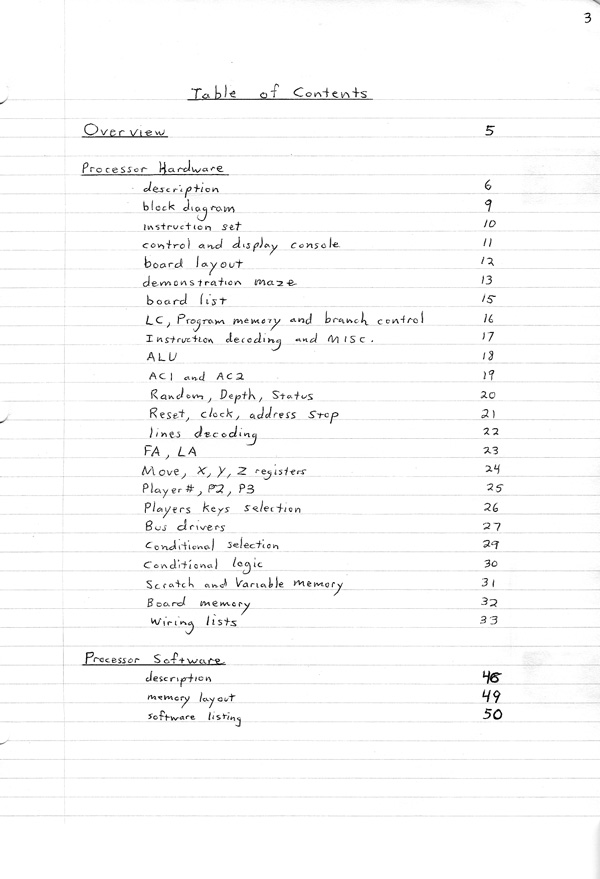 3
Table of Contents
Overview 5
Processor Hardware
description 6
block diagram 9
instruction set 10
control and display console 11
board layout 12
demonstration maze 13
board list 15
LC, Program memory and branch control 16
Instruction decoding and MISC. 17
ALU 18
AC1 and AC2 19
Random, Depth, Status 20
Reset, clock, address stop 21
lines decoding 22
FA, LA 23
Move, X, Y, Z registers 24
Player#, P2, P3 25
Players keys selection 26
Bus drivers 27
Conditional selection 29
Conditional logic 30
Scratch and Variable memory 31
Board memory 32
Wiring lists 33
Processor Software
description
memory layout 49
software listing 50